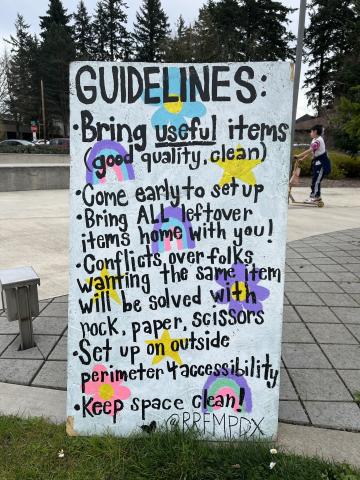 GUIDELINES:
•Bring useful items
(good quality, clean)
•Come early to set up
•Bring ALL leftover
items home with you!
•Conflicts over folks
wanting the same item
will be solved with
rock, paper, scissors
•Set up on outside
perimeter 4 accessibility
•Keep space clean!
@RRFMPDX